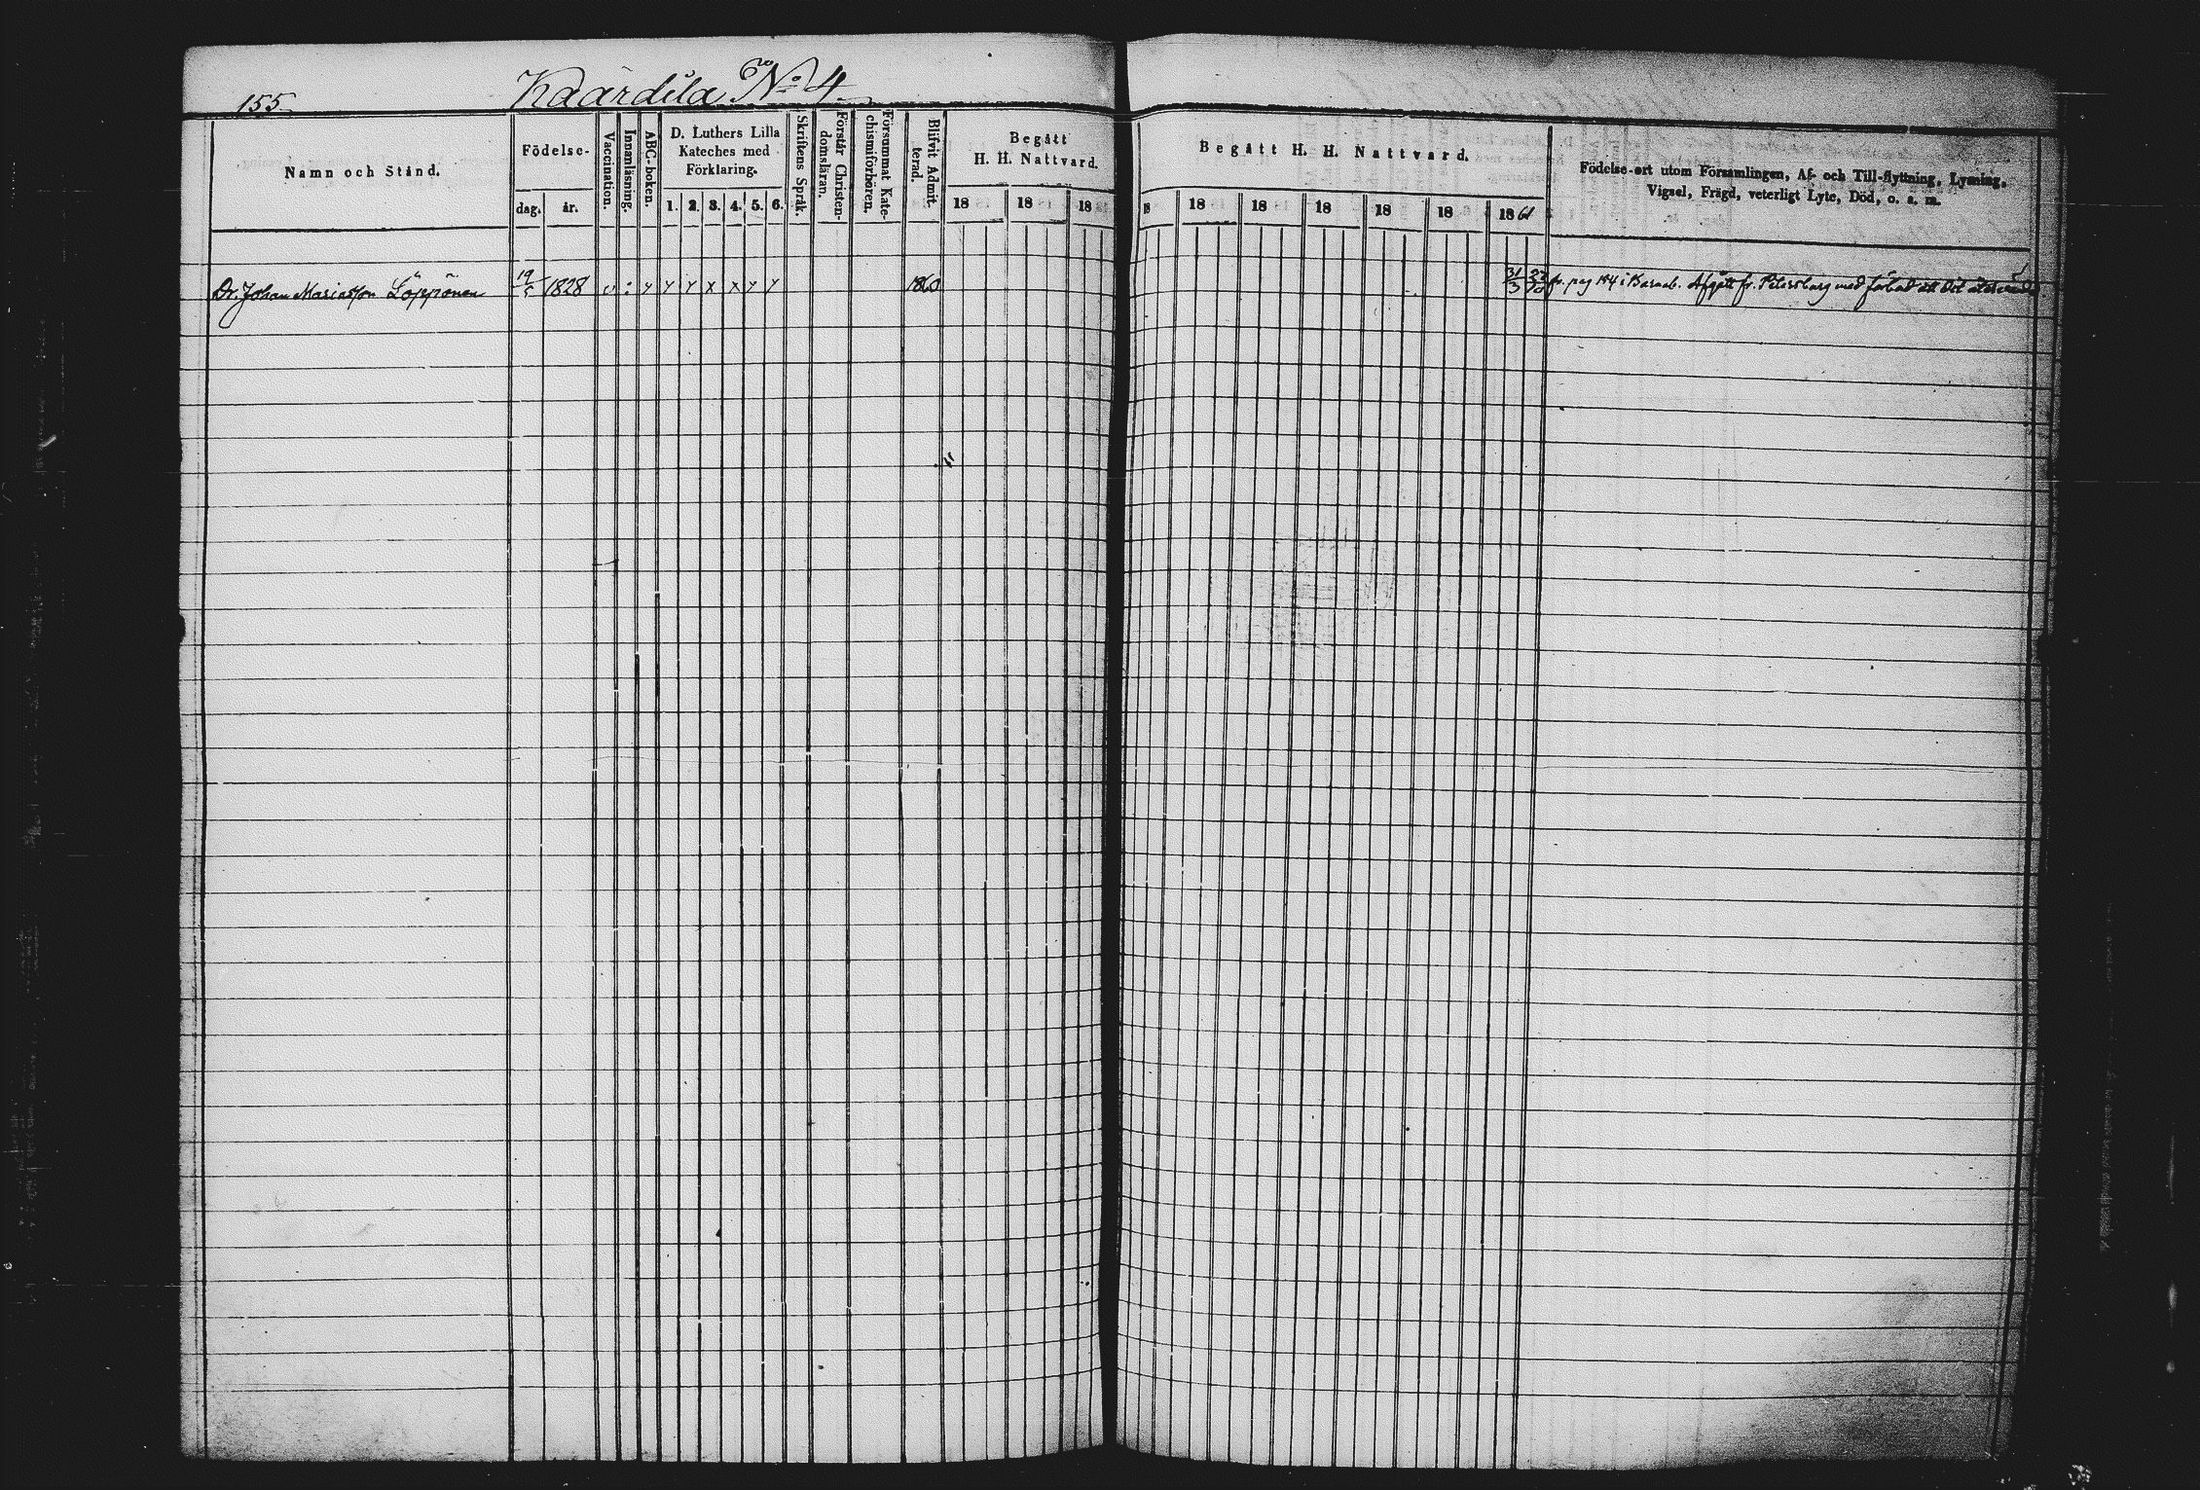 155
Kaárdila No 4
Namn och Stånd.
Födelse-
dag. år.
Vaccination.
Innanläsning.
ABC-boken.
D. Luthers Lilla
Kateches med
Förklaring.
1. 2. 3. 4. 5. 6.
Skriftens Språk.
Förstår Christen-
domsläran.
Försummat Kate-
chismiförhören.
Blifvit Admit-
terad.
Begått
H. H. Nattvard.
18 18 18
Begått H. H. Nattvard.
18 18 18 18 18 18 1861
Födelse-ort utom Församlingen, Af- och Till-flyttning, Lysning,
Vigsel, Frägd, veterligt Lyte, Död, o. a. m.
Dr. Johan Mariasson Löppönen 19/5 1828 v : x x x x x x x 1860 31/3 fr. pag 144 i Barnab. Afgått fr. Petersburg med förbud att dit